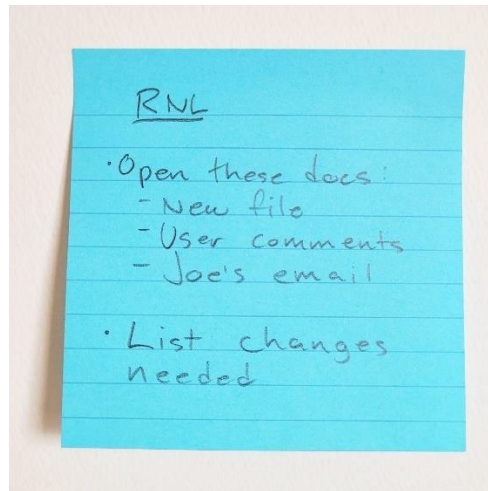 RNL
· Open these docs:
- New file
- User comments
- Joe's email
· List changes
needed